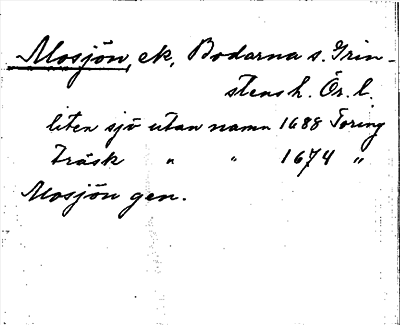 Mosjön, ek, Bodarna s. Grin-
stens h. Ör. l.
liten sjö utan namn 1688 Toring
Träsk " " 1674 "
Mosjön gen.